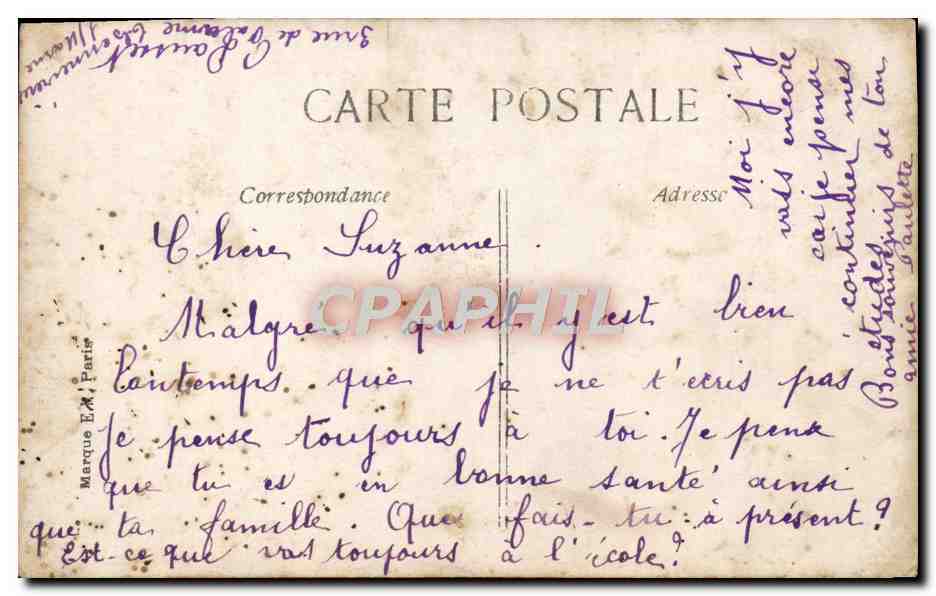 CARTE POSTALE
Correspondance
Adresse
Marque E.K, Paris
CPAPHIL
Chère Suzanne.
Malgrés qu'il y est bien
lontemps que je ne t'ecris pas
Je pense toujours à toi. Je pense
que tu es en bonne santé ainsi
que ta famille. Que fais-tu à présent?
Est-ce que vas toujours à l'école?
Moi j'y
vais encore
car je pense
continuer mes
études
Bons souvenirs de ton
amie Paulette
Pausset
3 rue de
s/Marne